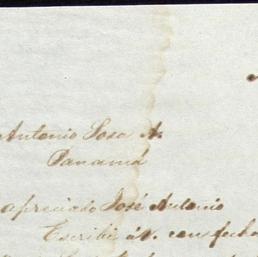 Antonio Sosa A.
Panamá
apreciado José Antonio
Escribí á V. con fecha